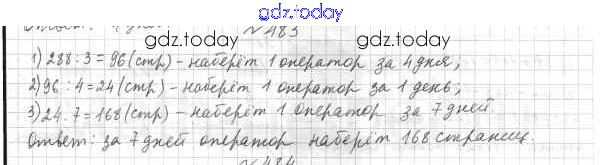 gdz.today
№ 483
gdz.today gdz.today
1) 288:3=96(стр) - наберёт 1 оператор за 4 дня;
2) 96:4=24(стр) - наберёт 1 оператор за 1 день;
3) 24·7=168(стр) - наберёт 1 оператор за 7 дней.
Ответ: за 7 дней оператор наберёт 168 страниц.
№ 484